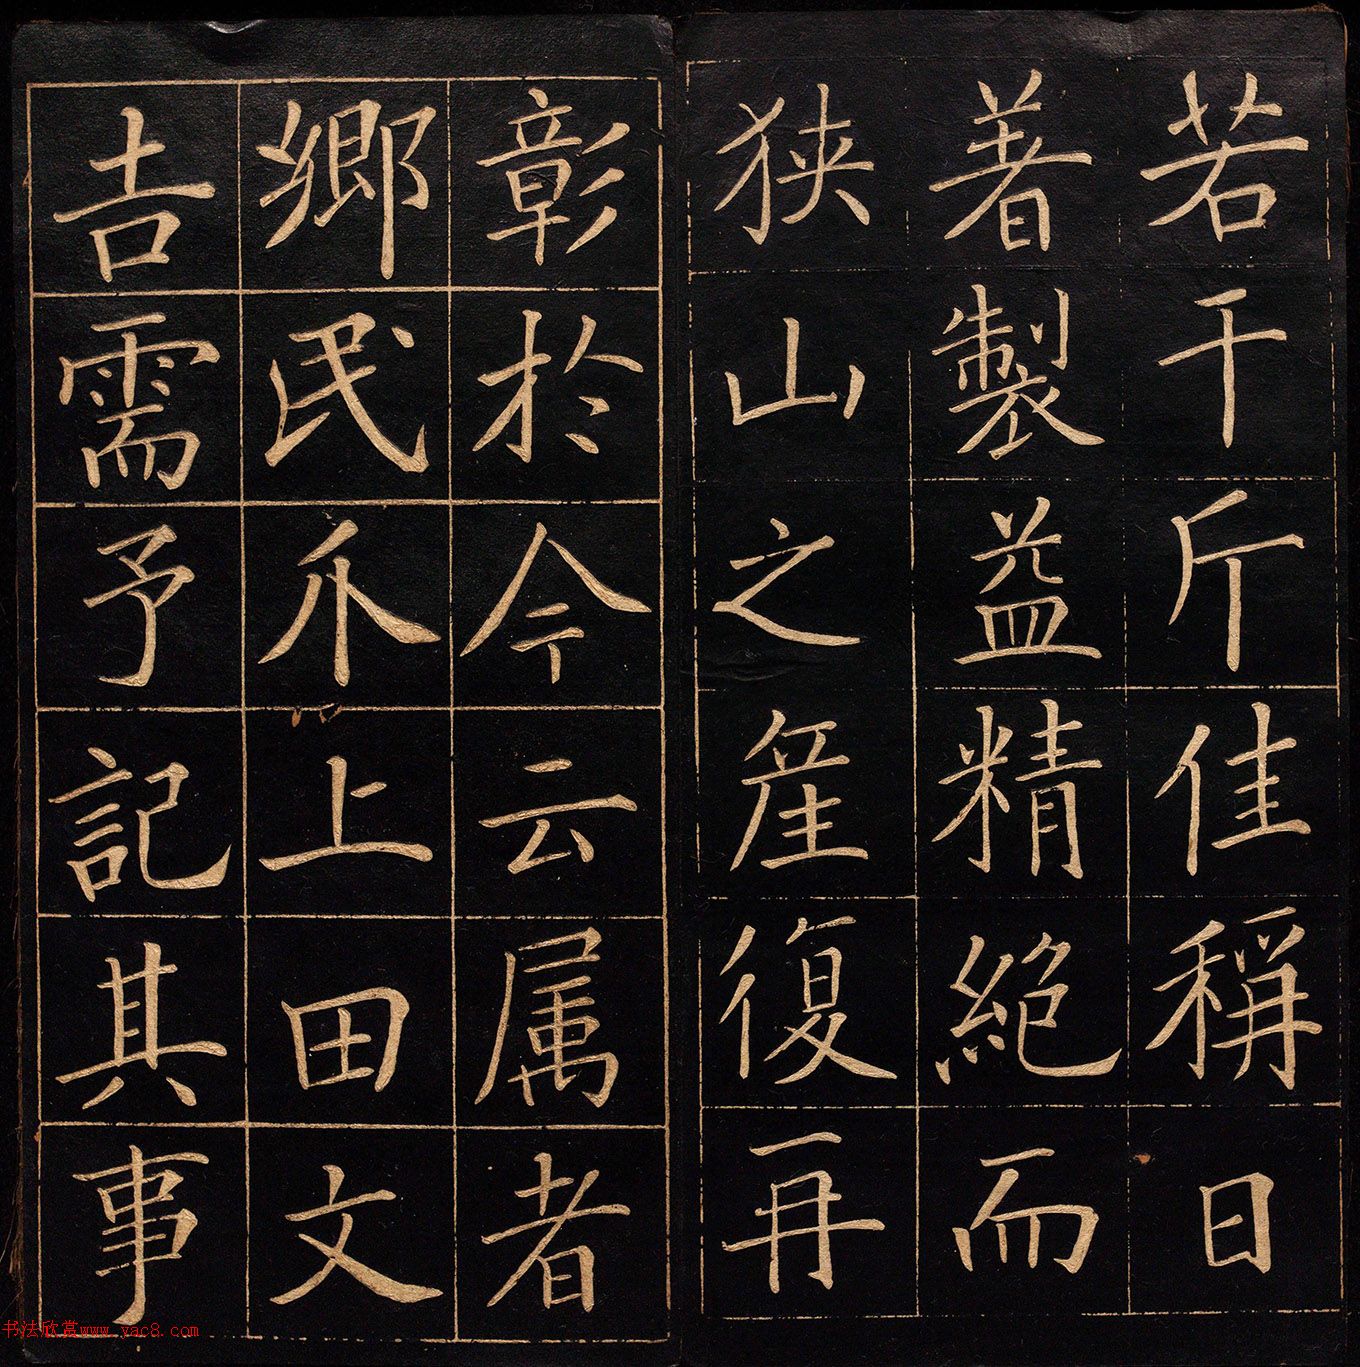 若干斤佳稱日
著製益精絕而
狹山之産復再
彰於今云属者
鄉民爪上田文
吉需予記其事
书法欣赏www.yac8.com